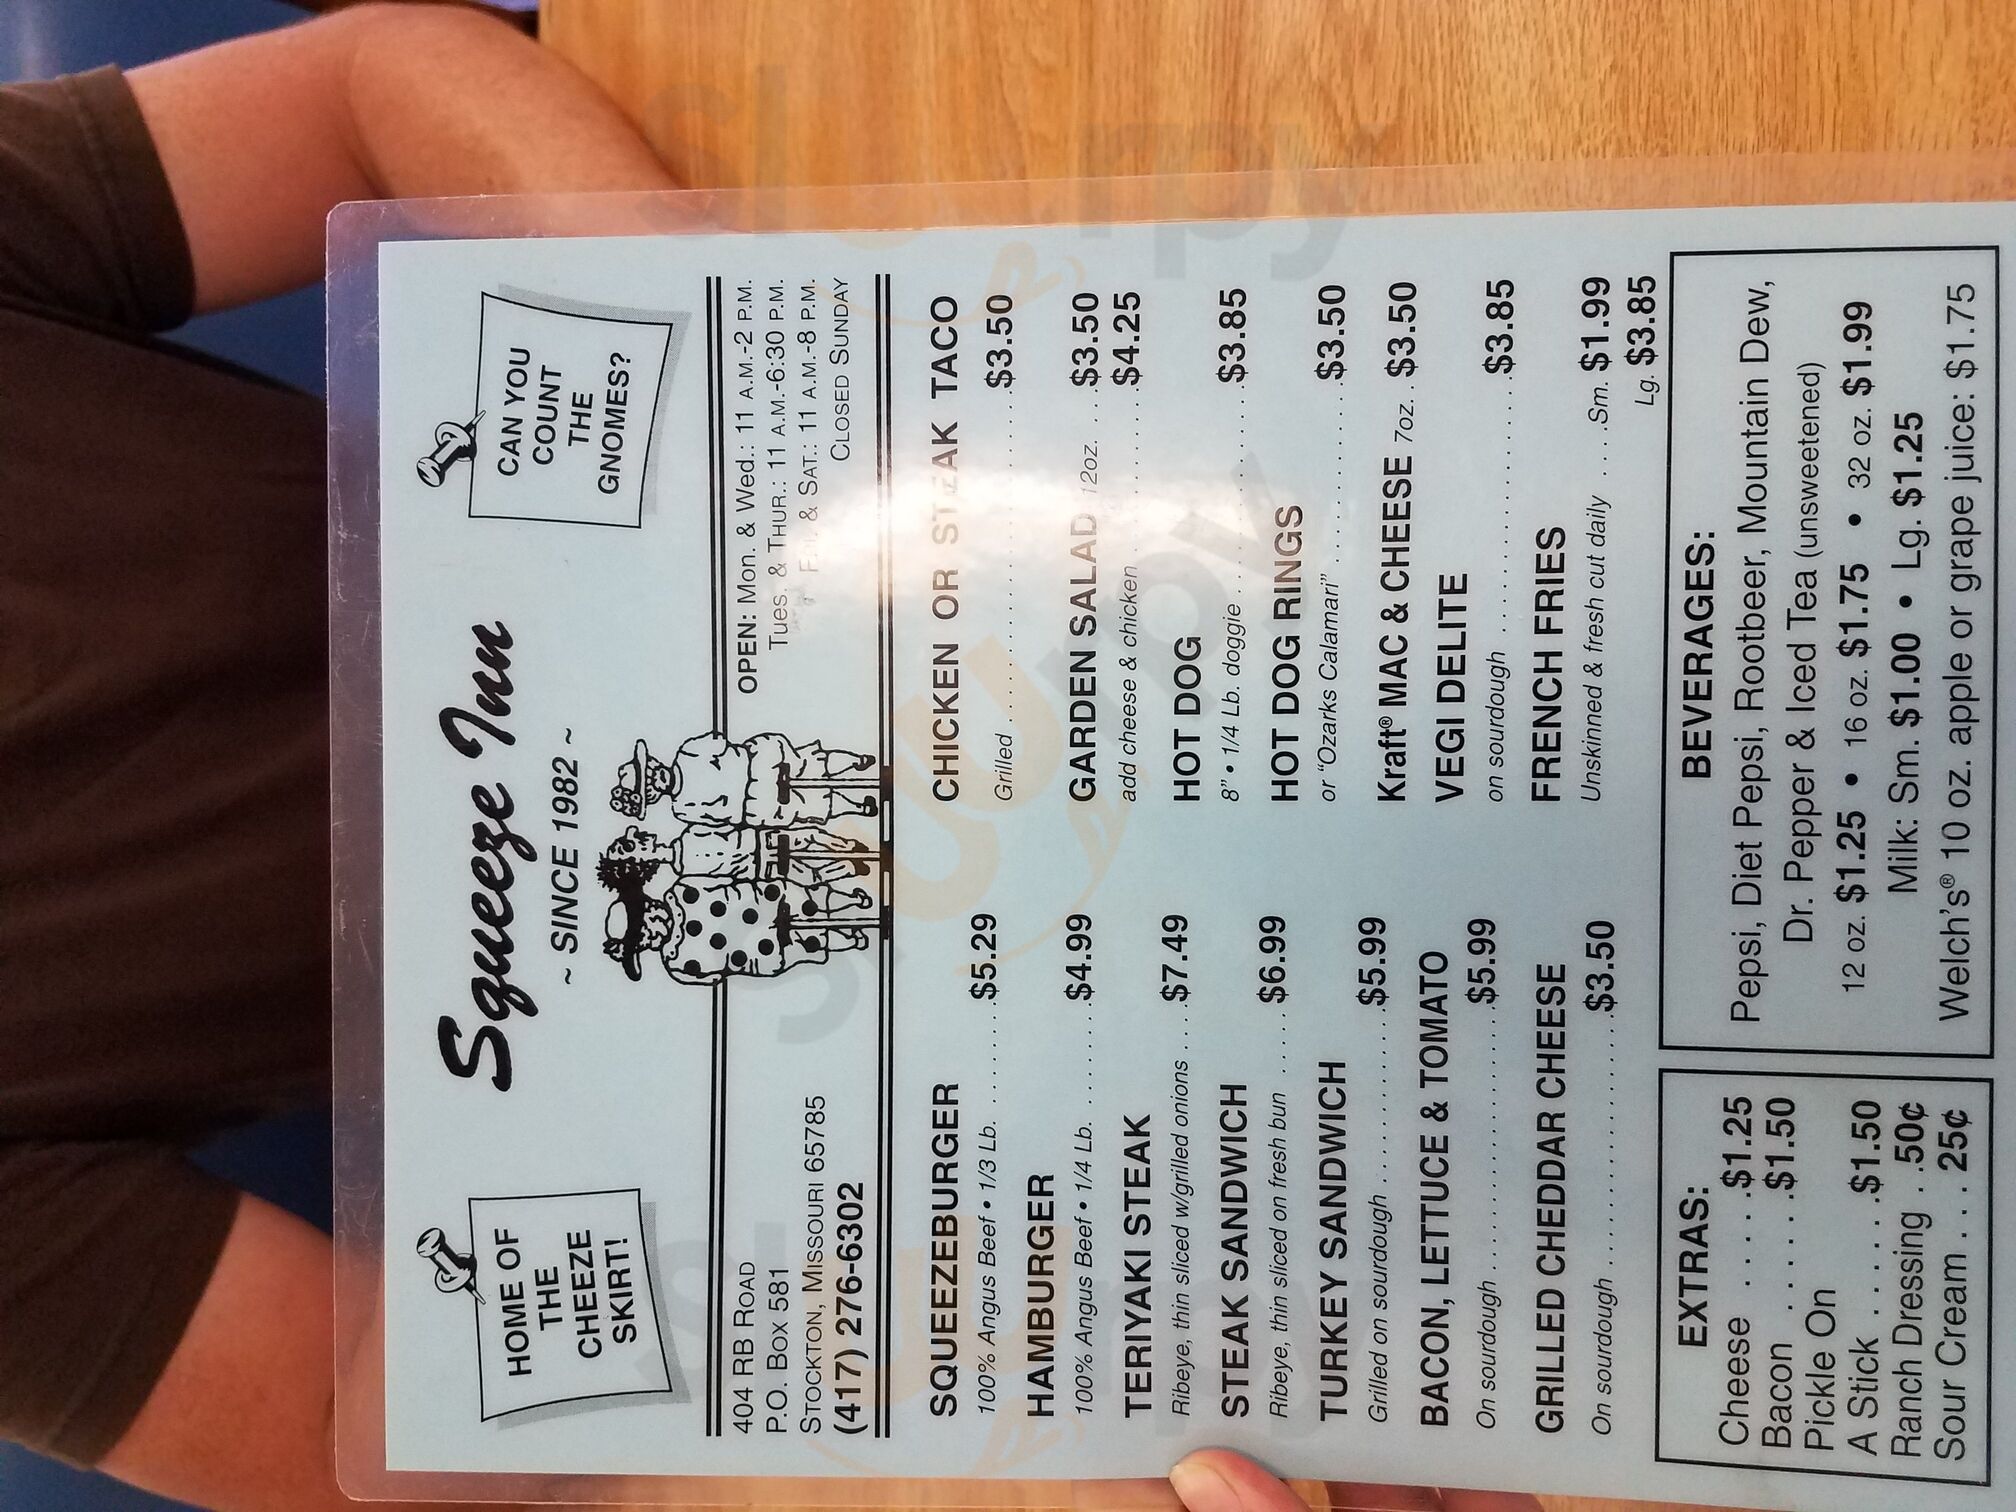 HOME OF
THE
CHEEZE
SKIRT!
Squeeze Inn
~ SINCE 1982 ~
CAN YOU
COUNT
THE
GNOMES?
404 RB ROAD
P.O. BOX 581
STOCKTON, MISSOURI 65785
(417) 276-6302
OPEN: Mon. & Wed.: 11 A.M.-2 P.M.
Tues. & THUR.: 11 A.M.-6:30 P.M.
FRI. & SAT.: 11 A.M.-8 P.M.
CLOSED SUNDAY
SQUEEZEBURGER
100% Angus Beef • 1/3 Lb. ........$5.29
HAMBURGER
100% Angus Beef • 1/4 Lb. ......$4.99
TERIYAKI STEAK
Ribeye, thin sliced w/grilled onions ....$7.49
STEAK SANDWICH
Ribeye, thin sliced on fresh bun .....$6.99
TURKEY SANDWICH
Grilled on sourdough ............$5.99
BACON, LETTUCE & TOMATO
On sourdough ...............$5.99
GRILLED CHEDDAR CHEESE
On sourdough ...............$3.50
CHICKEN OR STEAK TACO
Grilled ....................$3.50
GARDEN SALAD 12oz. ...$3.50
add cheese & chicken ...........$4.25
HOT DOG
8" • 1/4 Lb. doggie ............$3.85
HOT DOG RINGS
or "Ozarks Calamari" ...........$3.50
Kraft® MAC & CHEESE 7oz. .$3.50
VEGI DELITE
on sourdough ...............$3.85
FRENCH FRIES
Unskinned & fresh cut daily ....Sm. $1.99
Lg. $3.85
EXTRAS:
Cheese .....$1.25
Bacon ......$1.50
Pickle On
A Stick ......$1.50
Ranch Dressing ..50¢
Sour Cream ....25¢
BEVERAGES:
Pepsi, Diet Pepsi, Rootbeer, Mountain Dew,
Dr. Pepper & Iced Tea (unsweetened)
12 oz. $1.25 • 16 oz. $1.75 • 32 oz. $1.99
Milk: Sm. $1.00 • Lg. $1.25
Welch's® 10 oz. apple or grape juice: $1.75
Slurpy
Slurpy
Slurpy